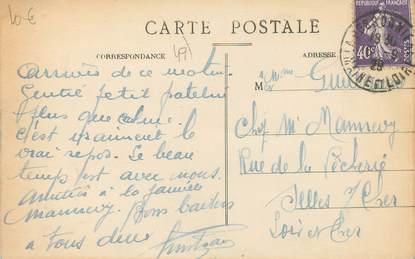 10€
CARTE POSTALE
(49)
CORRESPONDANCE
ADRESSE
RÉPUBLIQUE FRANÇAISE
40c
ET LOIRE
Arrivés de ce matin.
Gentil petit patelin
plus que calme
c'est vraiment le
vrai repos. Le beau
temps est avec nous.
Amitiés à la famille
Mannevy. Bons baisers
à tous deux
M
Chez Mr Mannevy
Rue de la Pêcherie
Selles s/ Cher
Loir et Cher